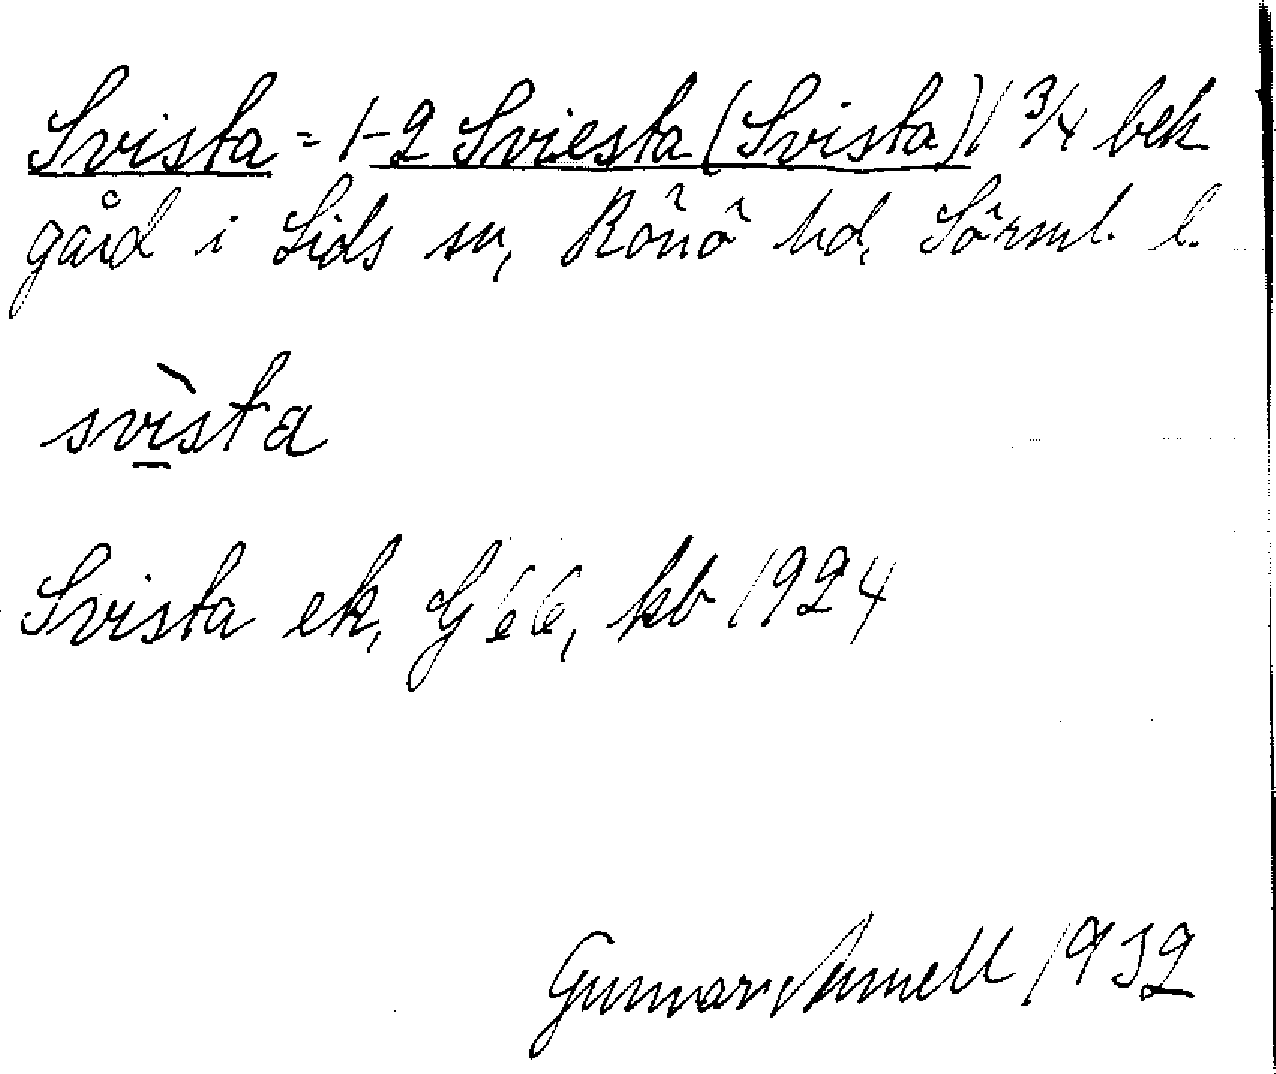 Svista = 1-2 Sviesta (Svista) 1 3/4 bek
gård i Lids sn, Rönö hd, Sörml. l.
svìsta
Svista ek, G 66, kb 1924
Gunnar 1932